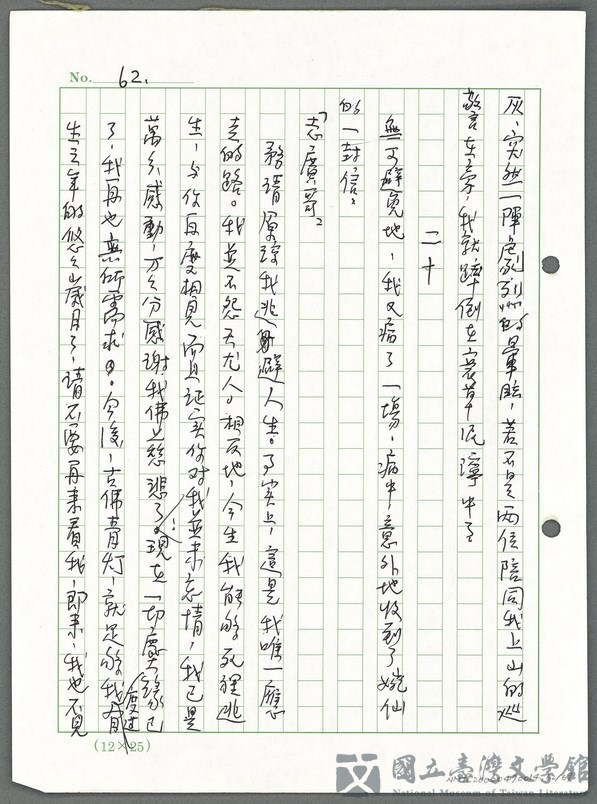 No. 62.
灰，突然一陣劇烈的暈眩，若不是兩位陪同我上山的巡
警在旁，我就蹄倒在衰草泥濘中了
二十
無可避免地，我又病了一場，病中，意外地收到了婉仙
的一封信：
「志廣哥：
務請原諒我逃避人生。事實上，這是我唯一應
走的路。我並不怨天尤人。相反地，今生我能夠死裡逃
生，与你再度相見而且证实你对我並未忘情，我已是
萬分感動，万分感谢我佛之慈悲了！現在一切塵緣已
了，我再也無所需求。今後，古佛青灯，就足夠我度过有
生之年的悠久歲月了，請不要再来看我，即来，我也不見
(12×25)
國立臺灣文學館
National Museum of Taiwan Literature